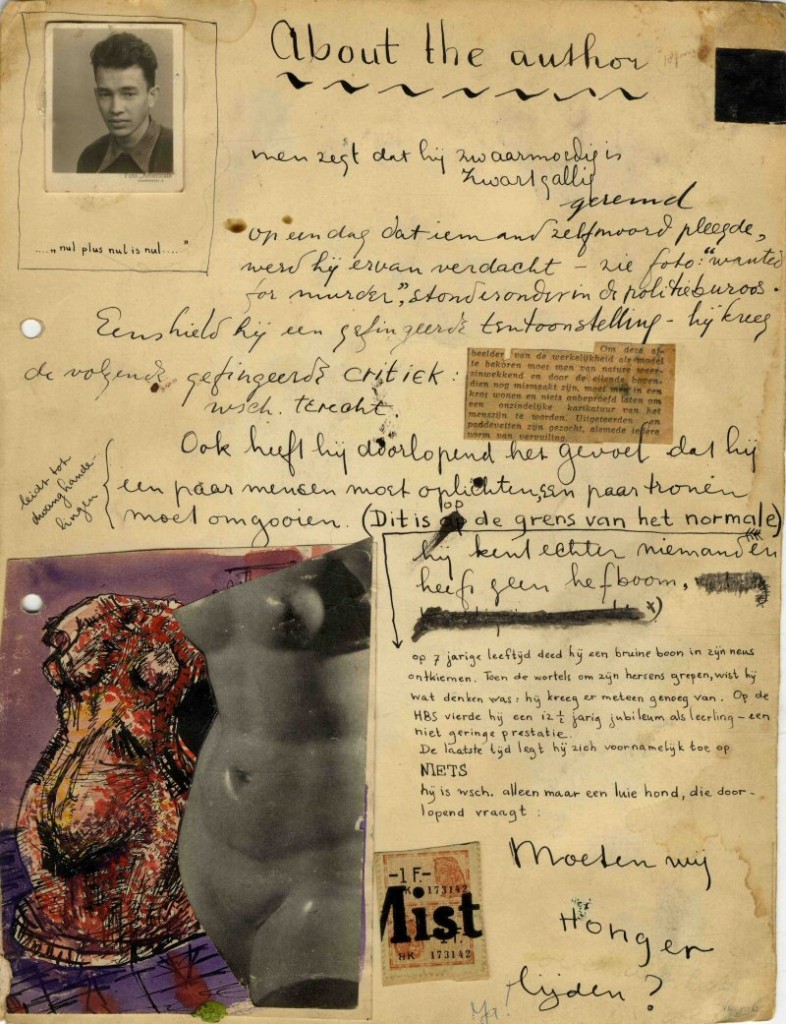 About the author
men zegt dat hij zwaarmoedig is
zwartgallig
geremd
...." nul plus nul is nul...."
op een dag dat iemand zelfmoord pleegde,
werd hij ervan verdacht – zie foto: "wanted
for murder", stond eronder in de politieburoos.
Eens hield hij een gefingeerde tentoonstelling – hij kreeg
de volgende gefingeerde critiek:
wsch. terecht.
Om deze af-
beelder van de werkelijkheid als model
te bekoren moet men van nature weer-
zinwekkend en door de ellende boven-
dien nog mismaakt zijn, moet men in een
krot wonen en niets onbeproefd laten om
een onzindelijke karikatuur van het
menszijn te worden. Uitgeteerden en
poddevelten zijn gezocht, alsmede iedere
vorm van vervuiling.
Ook heeft hij doorlopend het gevoel dat hij
een paar mensen moet oplichten, een paar tronen
moet omgooien. (Dit is op de grens van het normale)
leidt tot
dwanghande-
lingen
hij kent echter niemand en
heeft geen hefboom.
op 7 jarige leeftijd deed hij een bruine boon in zijn neus
ontkiemen. Toen de wortels om zijn hersens grepen, wist hij
wat denken was: hij kreeg er meteen genoeg van. Op de
HBS vierde hij een 12 ½ jarig jubileum als leerling – een
niet geringe prestatie.
De laatste tijd legt hij zich voornamelijk toe op
NIETS
hij is wsch. alleen maar een luie hond, die door-
lopend vraagt:
Moeten wij
Honger
lijden?
-1 F.-
HK 173142
Mist
1 F.
HK 173142